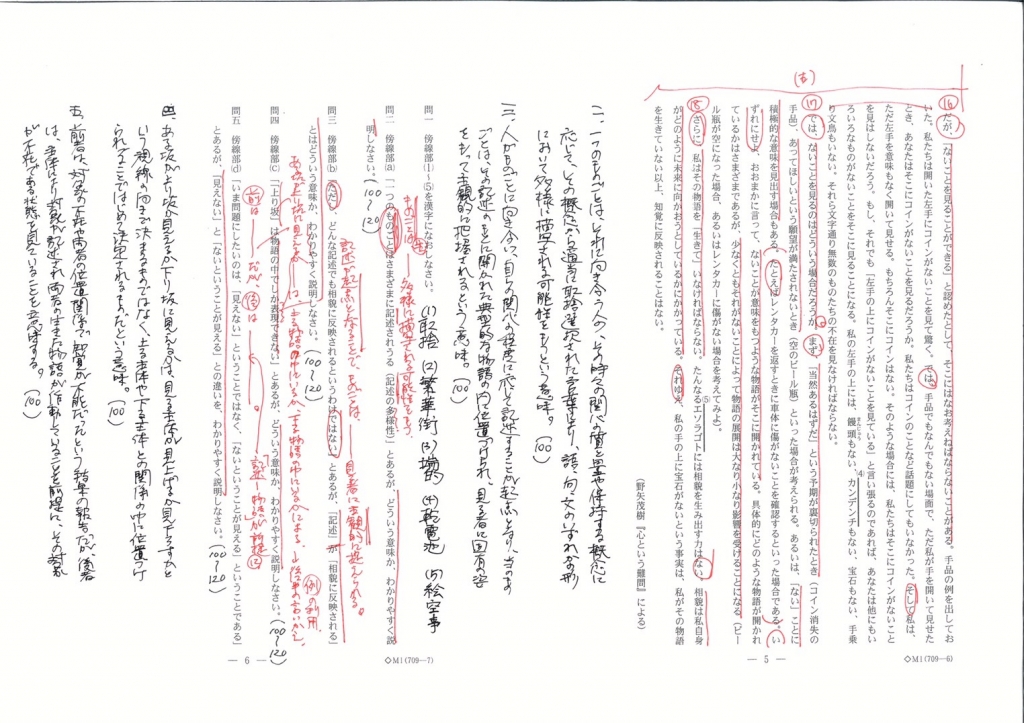 (吉)
⑯ だが、「ないことを見ることができる」と認めたとして、そこにはなお考えねばならないことがある。手品の例を出してお
いた。私たちは開いた左手にコインがないことを見て驚く。では、手品でもなんでもない場面で、ただ私が手を開いて見せた
とき、あなたはそこにコインがないことを見るだろうか。私たちはコインのことなど話題にしてもいなかった。そして私は、
ただ左手を意味もなく開いて見せる。もちろんそこにコインはない。そのような場合には、私たちはそこにコインがないこと
を見はしないだろう。もし、それでも「左手の上にコインがないことを見ている」と言い張るのであれば、あなたは他にもい
ろいろなものがないことをそこに見ることになる。私の左手の上には、饅頭もない、カンデンチもない、宝石もない、手乗
り文鳥もいない、それら文字通り無数のものたちの不在を見なければならない。
⑰ では、ないことを見るのはどういう場合だろうか。まず、「当然あるはずだ」という予期が裏切られたとき(コイン消失の
手品)、あってほしいという願望が満たされないとき(空のビール瓶)といった場合が考えられる。あるいは、「ない」ことに
積極的な意味を見出す場合もある。たとえばレンタカーを返すときに車体に傷がないことを確認するといった場合である。い
ずれにせよ、おおまかに言って、ないことが意味をもつような物語がそこに開かれている。具体的にどのような物語が開かれ
ているかはさまざまであるが、少なくともそれがないことによって物語の展開は大なり小なり影響を受けることになる。(ビー
ル瓶が空になった場合、あるいはレンタカーに傷がない場合を考えてみよ)。
⑱ さらに、私はその物語を「生きて」いなければならない。たんなるエソラゴトには相貌を生み出す力はない。相貌は私自身
がどのように未来に向かおうとしているかにかかっている。それゆえ、私の手の上に宝石がないという事実は、私がその物語
を生きていない以上、知覚に反映されることはない。
(野矢茂樹『心という難問』による)
— 5 —
◇M1(709—6)
一、一つのものごとは、それに向き合う人の、その時々の関心の
応じて、その概念から適当に取捨選択された言葉により、語、句、文のいずれかの形
において多様に描写される可能性をもつという意味。(100)
二、人がものごとに向き合い、自らの関心の程度に応じて記述することが起点となり、当のもの
ごとは、その記述のもとに開かれた典型的な物語の内に位置づけられ、見る者に固有の姿
をもって主観的に把握されるという意味。(100)
(1)取捨 (2)繁華街 (3)端的 (4)乾電池 (5)絵空事
問一 傍線部(1)〜(5)を漢字になおしなさい。
問二 傍線部(a)「一つのものごとはさまざまに記述されうる(記述の多様性)」とあるが、どういう意味か、わかりやすく説
明しなさい。(100〜120)
多様に描写される可能性をもつ
問三 傍線部(b)「ただし、どんな記述でも相貌に反映されるというわけではない」とあるが、「記述」が「相貌に反映される」
とはどういう意味か、わかりやすく説明しなさい。(100〜120)
記述が起点となることで、ものごとは、— 見る者に主観的に捉えられる。
問四 傍線部(c)「『上り坂』は物語の中でしか表現できない」とあるが、どういう意味か、わかりやすく説明しなさい。(100〜120)
例の利用
問五 傍線部(d)「いま問題にしたいのは、「見えない」ということではなく、「ないということが見える」ということである」
とあるが、「見えない」と「ないということが見える」との違いを、わかりやすく説明しなさい。(100〜120)
前は — だが、後は — 。
四、ある坂が上り坂に見えるか下り坂に見えるかは、見る主体が見上げるか見下ろすかと
いう視線の向きで決まるものではなく、上る主体や下る主体との関係の中に位置づけ
られることではじめて決定されるものだという意味。(100)
五、前者は、対象の不在や両者の位置関係で知覚が不能だという、結果の報告だが、後者
は、主体により対象が記述され両者のはまる物語が作動していることを前提に、その対象
が不在である状態を見ていることを意味する。(100)
— 6 —
◇M1(709—7)